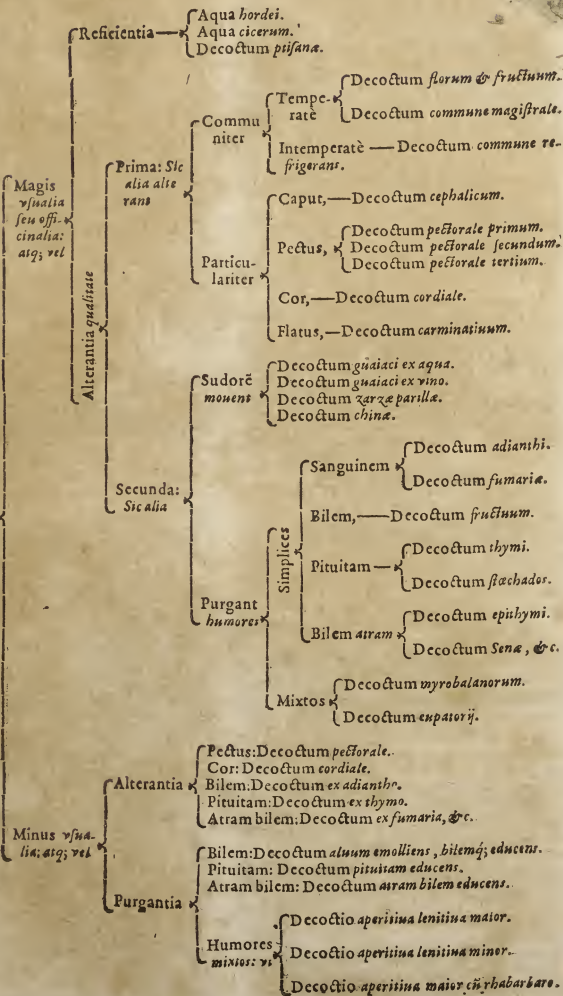 Reficientia
Aqua hordei.
Aqua cicerum.
Decoctum ptiſanæ.
Magis
vſualia
ſeu offi-
cinalia:
atq; vel
Alterantia qualitate
Prima: Sic
alia alte
rant
Commu
niter
Tempe-
ratè
Decoctum florum & fructuum.
Decoctum commune magiſtrale.
Intemperatè — Decoctum commune re-
frigerans.
Particu-
lariter
Caput, — Decoctum cephalicum.
Pectus,
Decoctum pectorale primum.
Decoctum pectorale ſecundum.
Decoctum pectorale tertium.
Cor, — Decoctum cordiale.
Flatus, — Decoctum carminatiuum.
Secunda:
Sic alia
Sudorē
mouent
Decoctum guaiaci ex aqua.
Decoctum guaiaci ex vino.
Decoctum zarzæ parillæ.
Decoctum chinæ.
Purgant
humores
Simplices
Sanguinem
Decoctum adianthi.
Decoctum fumariæ.
Bilem, — Decoctum fructuum.
Pituitam —
Decoctum thymi.
Decoctum ſtœchados.
Bilem atram
Decoctum epithymi.
Decoctum Senæ, & c.
Mixtos
Decoctum myrobalanorum.
Decoctum eupatorij.
Minus vſua-
lia; atq; vel
Alterantia
Pectus: Decoctum pectorale.
Cor: Decoctum cordiale.
Bilem: Decoctum ex adiantho.
Pituitam: Decoctum ex thymo.
Atram bilem: Decoctum ex fumaria, & c.
Purgantia
Bilem: Decoctum aluum emolliens, bilemq; educens.
Pituitam: Decoctum pituitam educens.
Atram bilem: Decoctum atram bilem educens.
Humores
mixtos: vt
Decoctio aperitiua lenitiua maior.
Decoctio aperitiua lenitiua minor.
Decoctio aperitiua maior cū rhabarbaro.